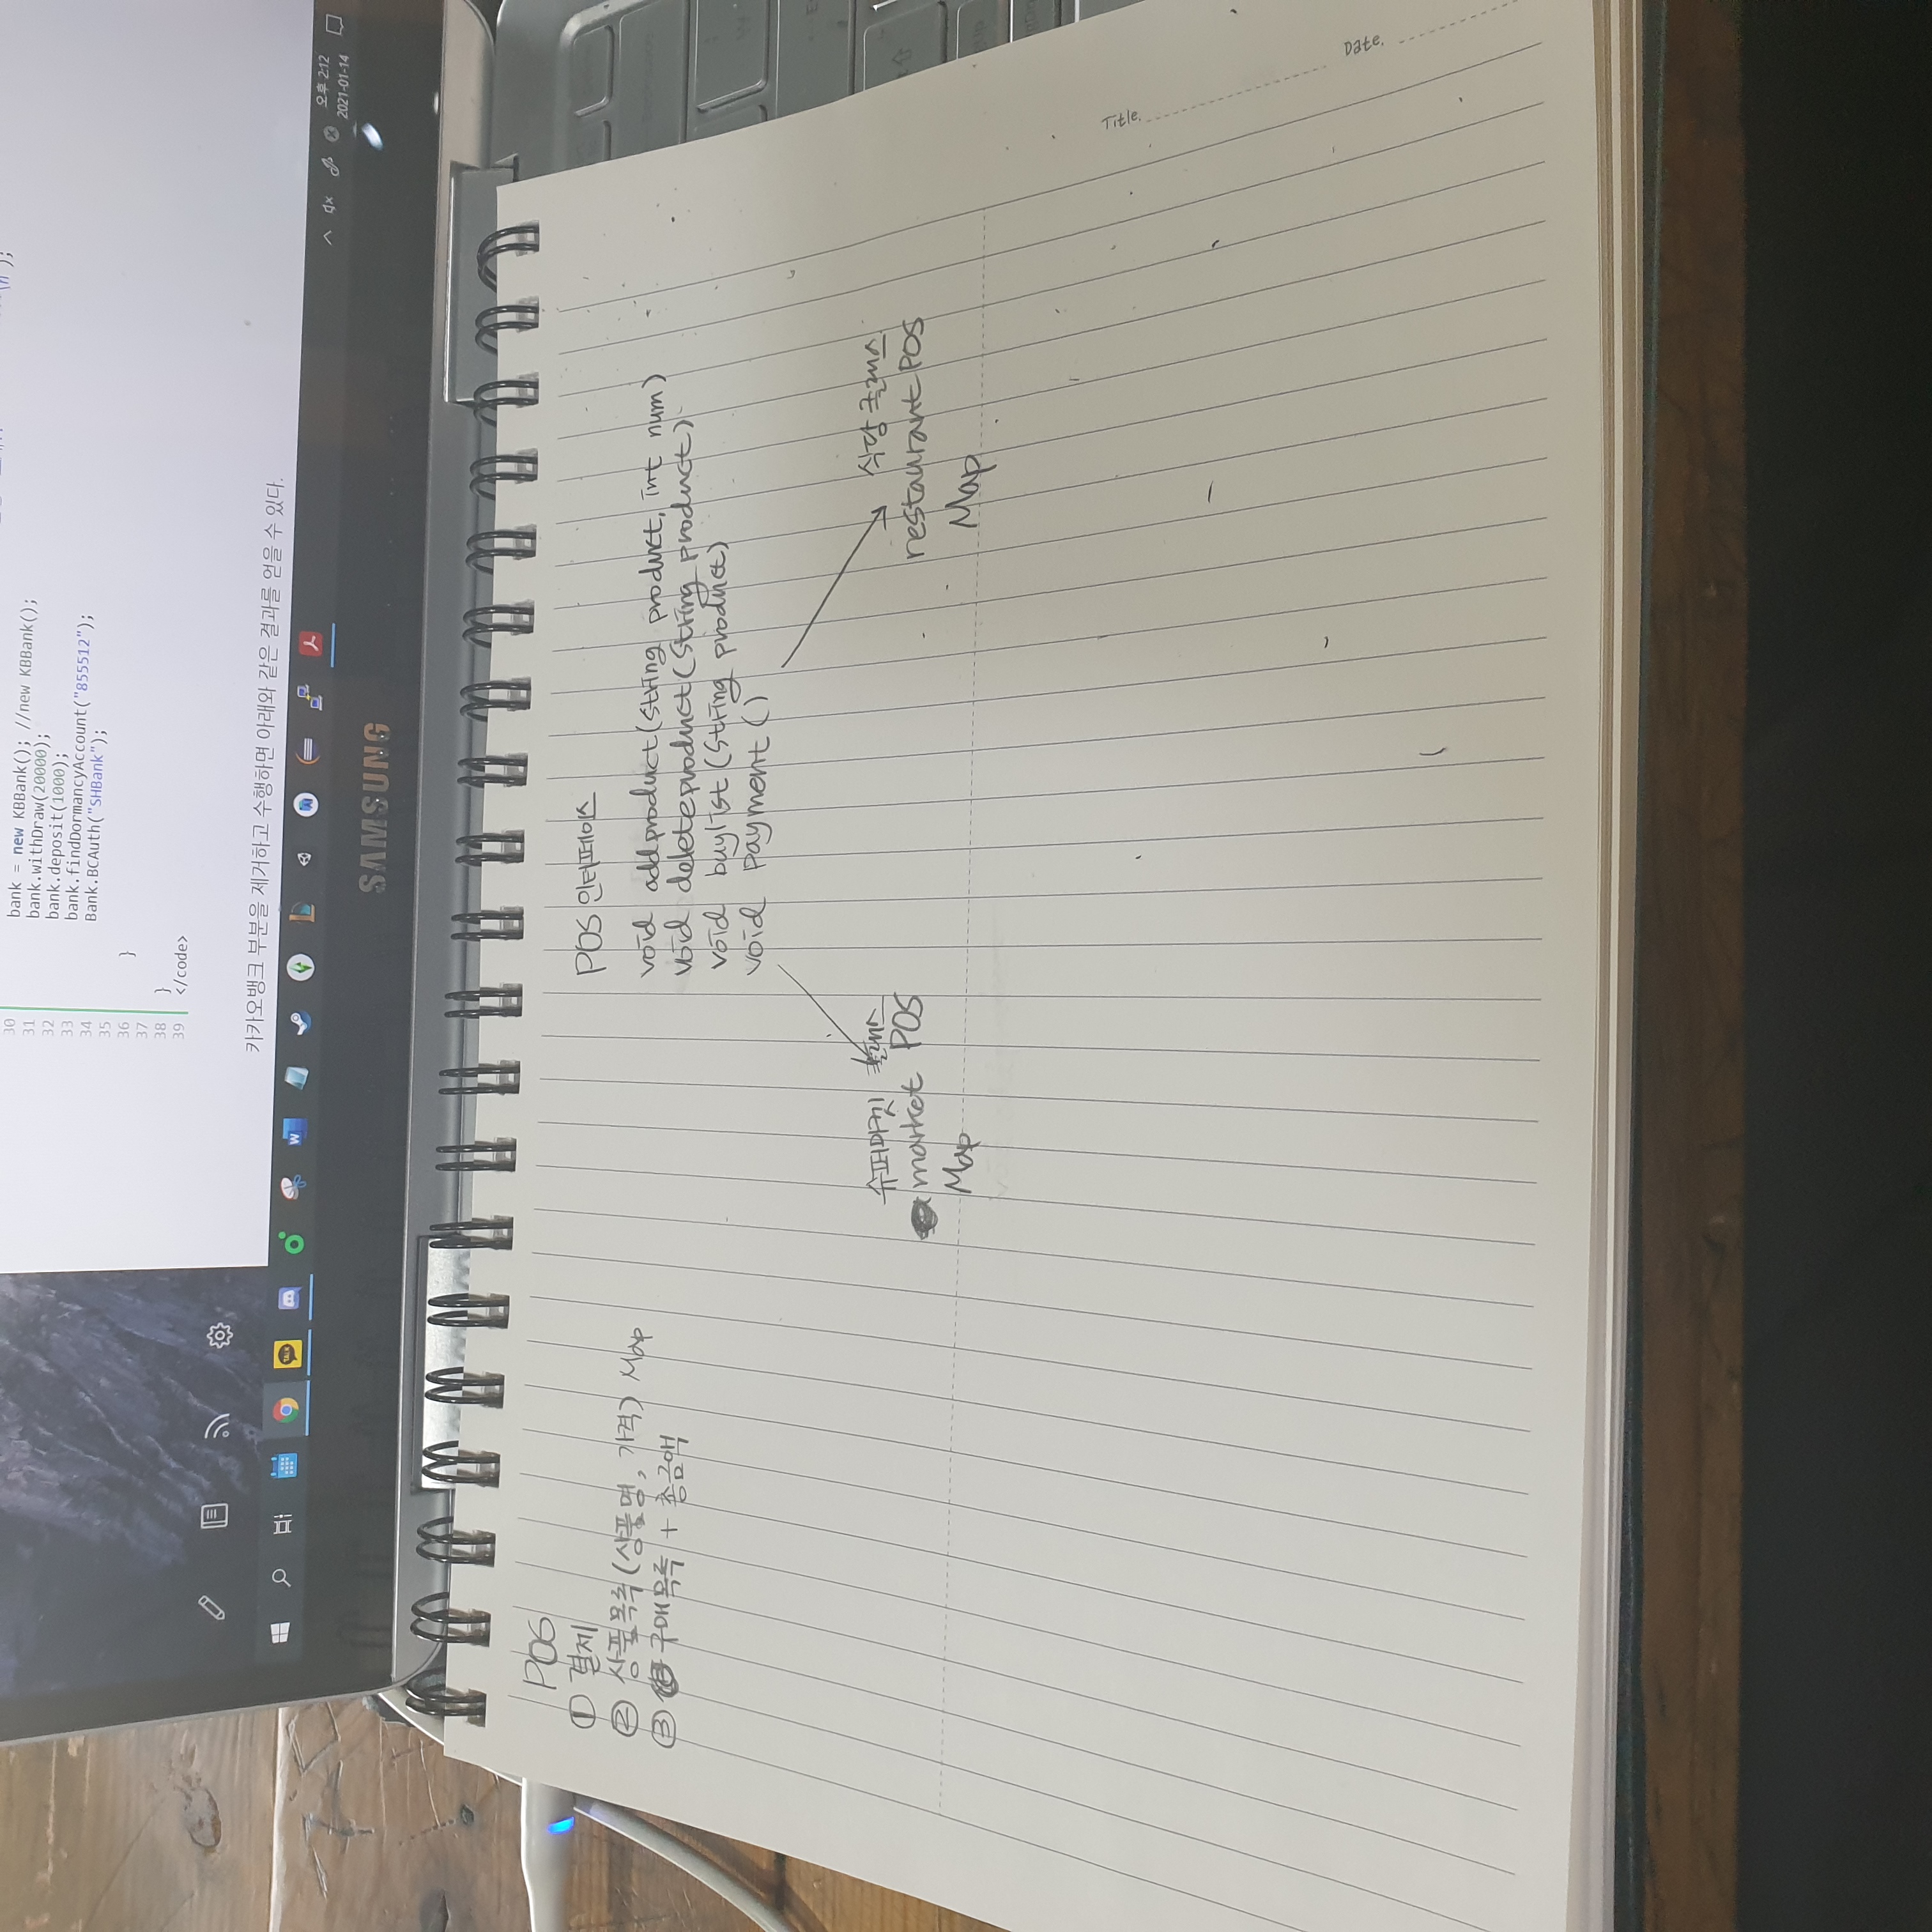 30
31 bank = new KBBank(); //new KBBank();
32 bank.withDraw(20000);
33 bank.deposit(1000);
34 bank.findDormancyAccount("855512");
35 Bank.BCAuth("SHBank");
36 }
37
38 }
39 </code>
\n");
카카오뱅크 부분을 제거하고 수행하면 아래와 같은 결과를 얻을 수 있다.
TALK
W
오후 2:12
2021-01-14
SAMSUNG
POS
① 결제
② 상품목록(상품명, 가격) Map
③ 구매목록 + 총금액
POS 인터페이스
void addproduct(String product, int num)
void deleteproduct(String product)
void buylist(String product)
void payment()
슈퍼마켓 클래스
market POS
Map
식당 클래스
restaurant POS
Map
Title.
Date.